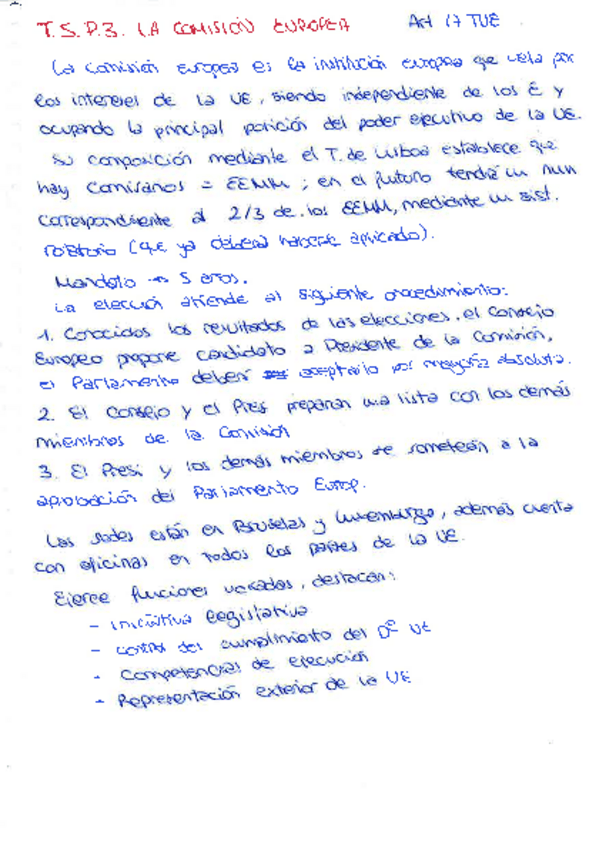 T.5.P.3. LA COMISIÓN EUROPEA Art 17 TUE
La comisión europea es la institución europea que vela por
los intereses de la UE, siendo independiente de los E y
ocupando la principal posición del poder ejecutivo de la UE.
Su composición mediante el T. de Lisboa establece que
hay Comisarios = EEMM; en el futuro tendrá un num
correspondiente al 2/3 de los EEMM, mediante un sist.
rotatorio (que ya debería haberse aplicado).
Mandato → 5 años.
La elección atiende al siguiente procedimiento:
1. Conocidos los resultados de las elecciones, el Consejo
Europeo propone candidato a Presidente de la Comisión,
el Parlamento deberá aceptarlo por mayoría absoluta.
2. El Consejo y el Pres preparan una lista con los demás
miembros de la Comisión
3. El Presi y los demás miembros se someterán a la
aprobación del Parlamento Europ.
Las sedes están en Bruselas y Luxemburgo, además cuenta
con oficinas en todos los países de la UE.
Ejerce funciones variadas, destacan:
- Iniciativa legislativa
- control del cumplimiento del Dº UE
- Competencias de ejecución
- Representación exterior de la UE